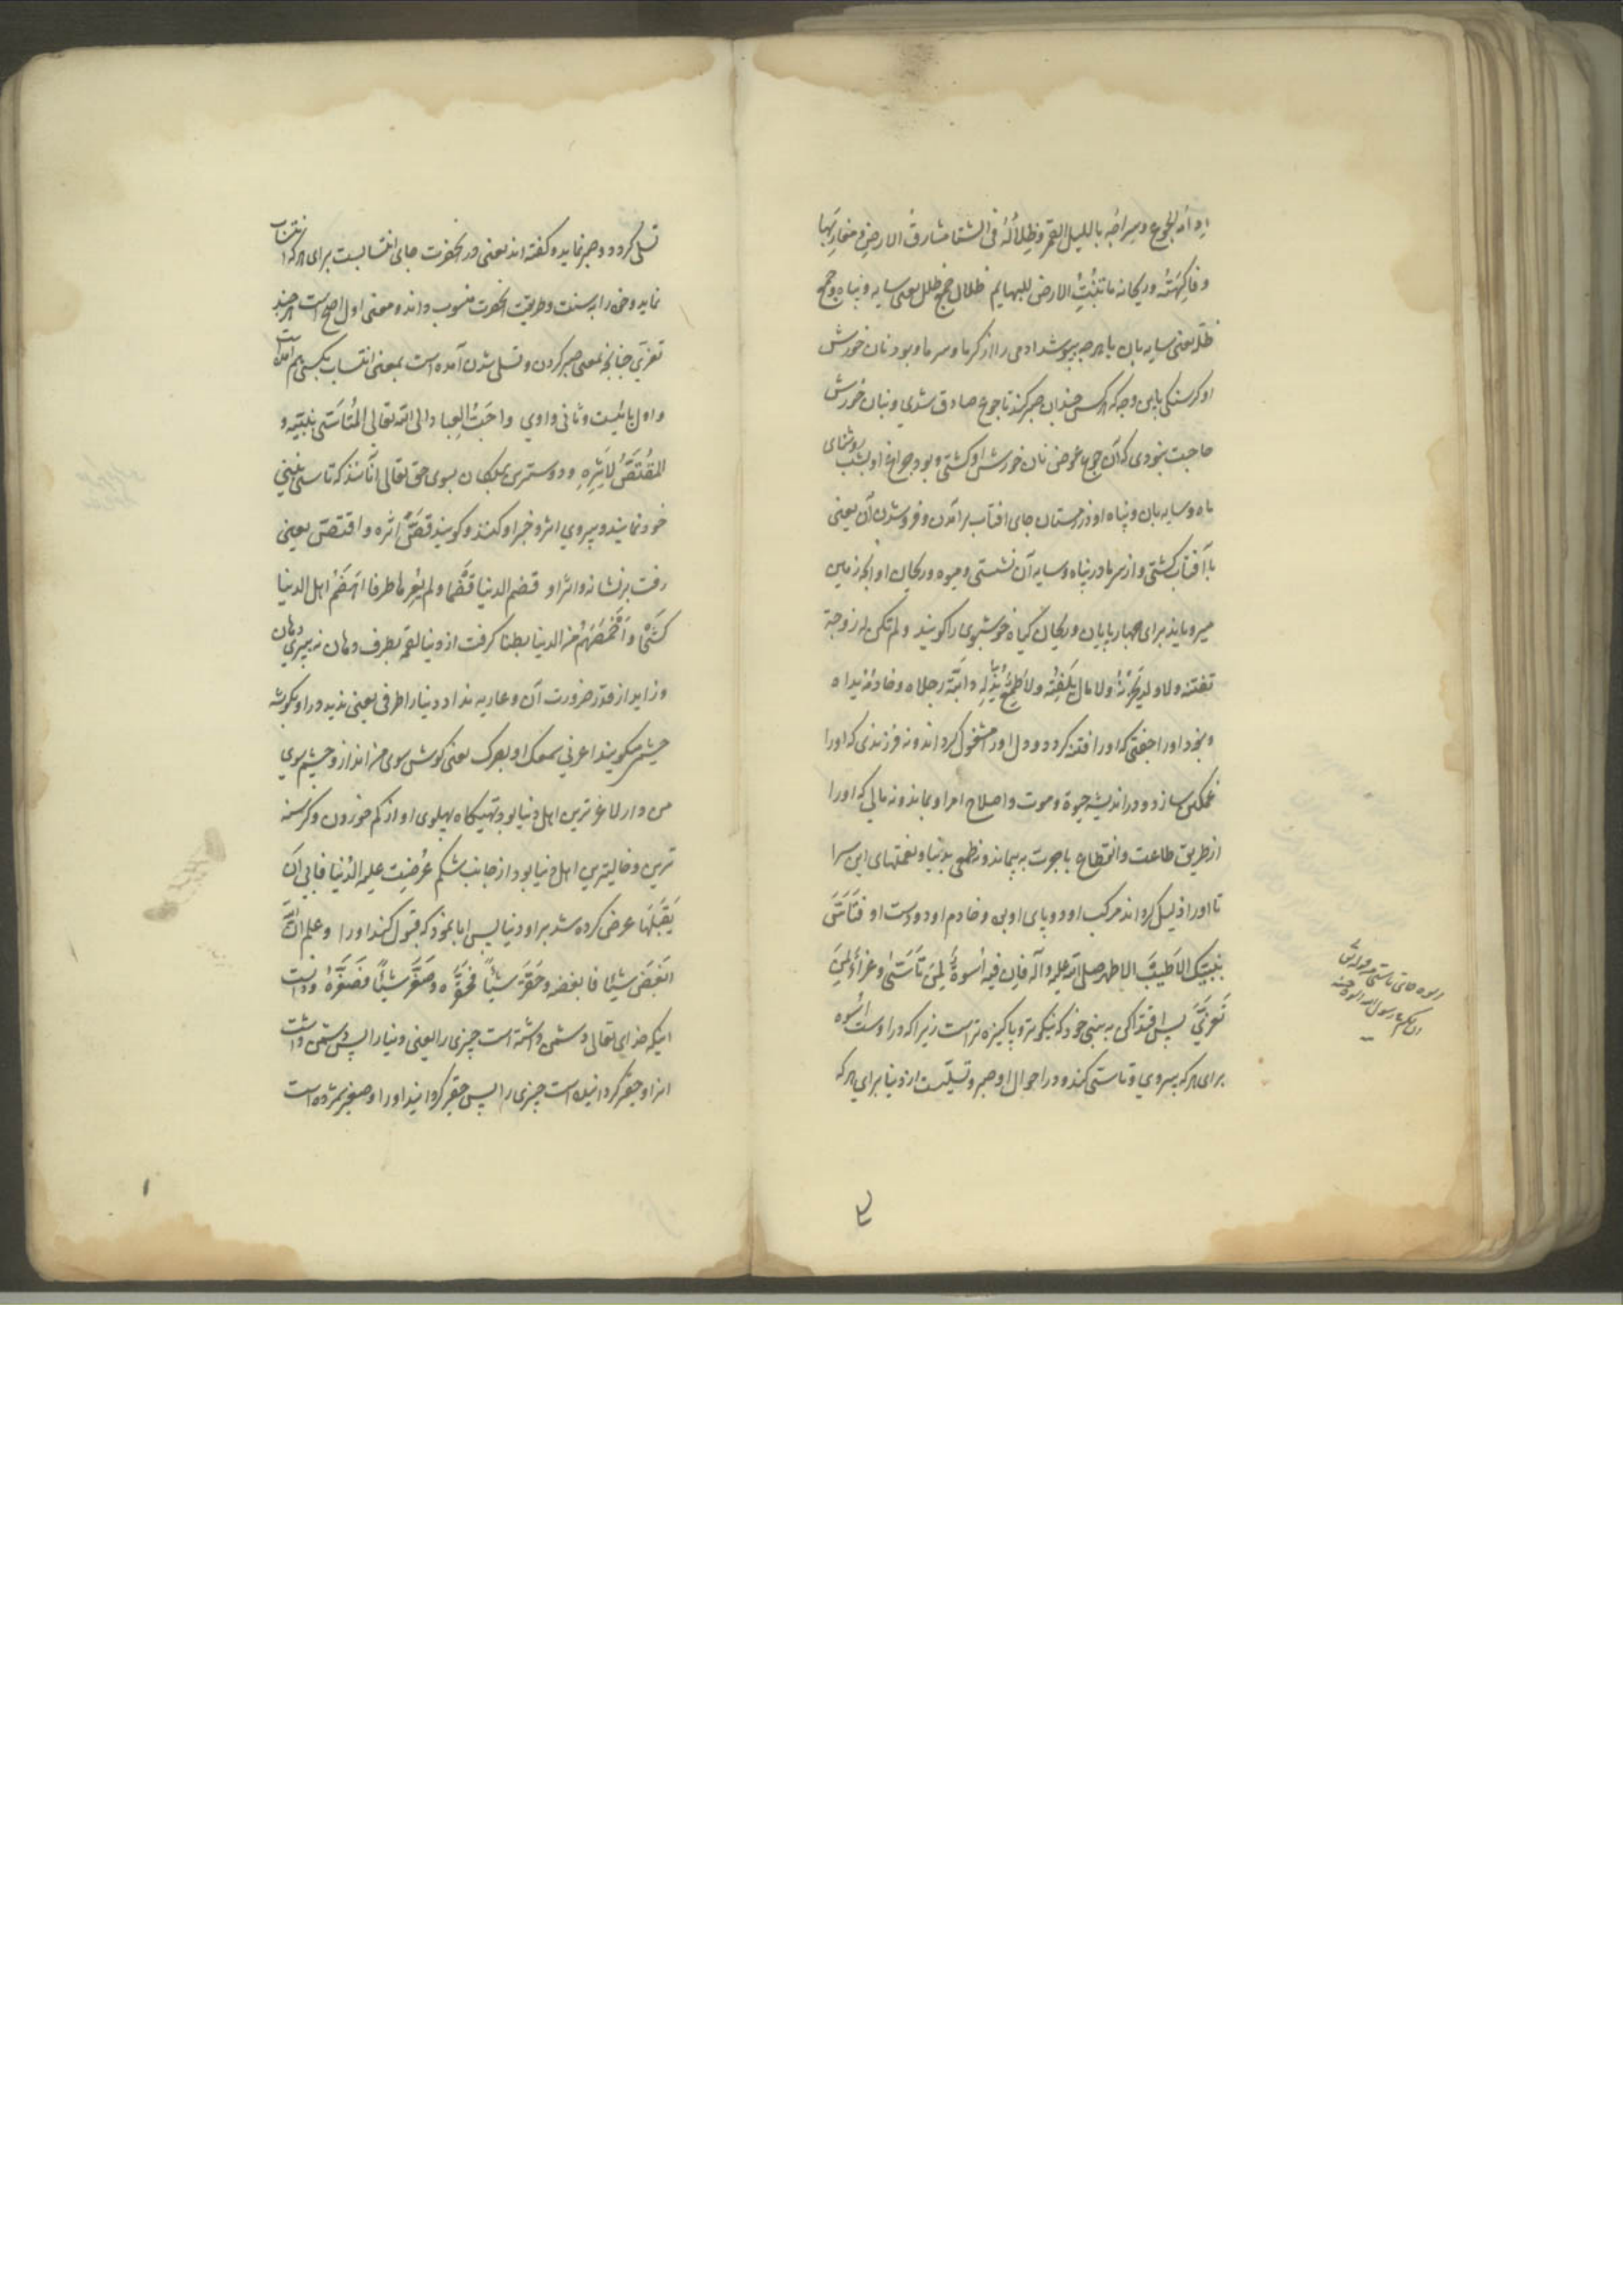 ادامه الجوع و سراجه باللیل القمر و ظلاله فی الشتا مشارق الارض و مغاربها
و فاکهته و ریحانه ما تنبت الارض للبهایم ظلال جمع ظل یعنی سایه و پناه و جمع
ظله یعنی سایه بان یا هرچه بپوشد ادمی را از کرما و سرما و بود نان خورش
او کرسنکی باین وجه که هرکس چندان صبر کند تا جوع صادق شدی و بنان خورش
حاجت نبودی که آن جوع عوض نان خورش او کشتی و بود چراغ او بشب روشنای
ماه و سایه بان و پناه او در زمستان جای افتاب برآمدن و فرو شدن آن یعنی
با آفتاب کشتی و از سرما در پناه و سایه آن نشستی و میوه و ریحان او انچه زمین
میرویاند برای چهارپایان و ریحان کیاه خوشبوی را کویند و لم تکن له زوجة
تفتنه و لا ولد یحزنه و لا مال یلفته و لا طمع یذله دابته رجلاه و خادمه یداه
و نبود او را جفتی که او را فتنه کردد و دل او را مشغول کرداند و نه فرزندی که او را
غمکین سازد و در اندیشه حیوة و موت و اصلاح امر او بماند و نه مالی که او را
از طریق طاعت و انقطاع باحرت بپیماند و نه طمعی بدنیا و نعمتهای این سرا
تا او را ذلیل کرداند مرکب او دو پای او بود و خادم او دو دست او فتأس
بنبیک الاطیب الاطهر صلی الله علیه و آله فان فیه اسوة لمن تأسی و عزاء لمن
تعزی پس اقتدا کن به نبی خود که نیکوتر و پاکیزه تر است زیرا که در اوست اسوه
برای هرکه پیروی و تاسی کند و در احوال او صبر و تسلیت از دنیا برای هرکه
تسلی کردد و صبر نماید و کفته اند یعنی در انحضرت جای انتسابست برای هرکه انتساب
نماید و خود را به سنت و طریقت انحضرت منسوب داند و معنی اول اصح است هرچند
تعزی چنانچه بمعنی صبر کردن و تسلی شدن آمده است بمعنی انتساب بکسی هم آمده است
و اول یائیست و ثانی واوی و احب العباد الی الله تعالی المتأسی بنبیه و
المقتص لاثره و دوستترین بندکان بسوی حق تعالی آنانند که تاسی بنبی
خود نمایند و پیروی اثر و خبر او کنند و کویند قصّ اثره و اقتصّ یعنی
رفت بر نشانه و اثر او قضم الدنیا قضما و لم یعرها طرفا اهضم اهل الدنیا
کشحا و اخمصهم من الدنیا بطنا کرفت از دنیا لقمه بطرف دهان نه بپری دهان
و زاید از قدر ضرورت آن و عاریه نداد دنیا را طرفی یعنی ندید در او بکوشه
چشم میکویند اعرنی سمعک او بصرک یعنی کوش سوی من انداز و چشم سوی
من دار لاغرترین اهل دنیا بود تهیکاه پهلوی او از کم خوردن و کرسنه
ترین و خالیترین اهل دنیا بود از جانب شکم عرضت علیه الدنیا فابی ان
یقبلها عرض کرده شد بر او دنیا پس ابا نمود که قبول کند او را و علم ان الله
ابغض شیئا فابغضه و حقر شیئا فحقره و صغر شیئا فصغره و دانست
اینکه خدای تعالی دشمن داشته است چیزی را یعنی دنیا را پس دشمن داشت
انرا و حقیر کردانیده است چیزی را پس حقیر کردانید او را و صغیر شمرده است